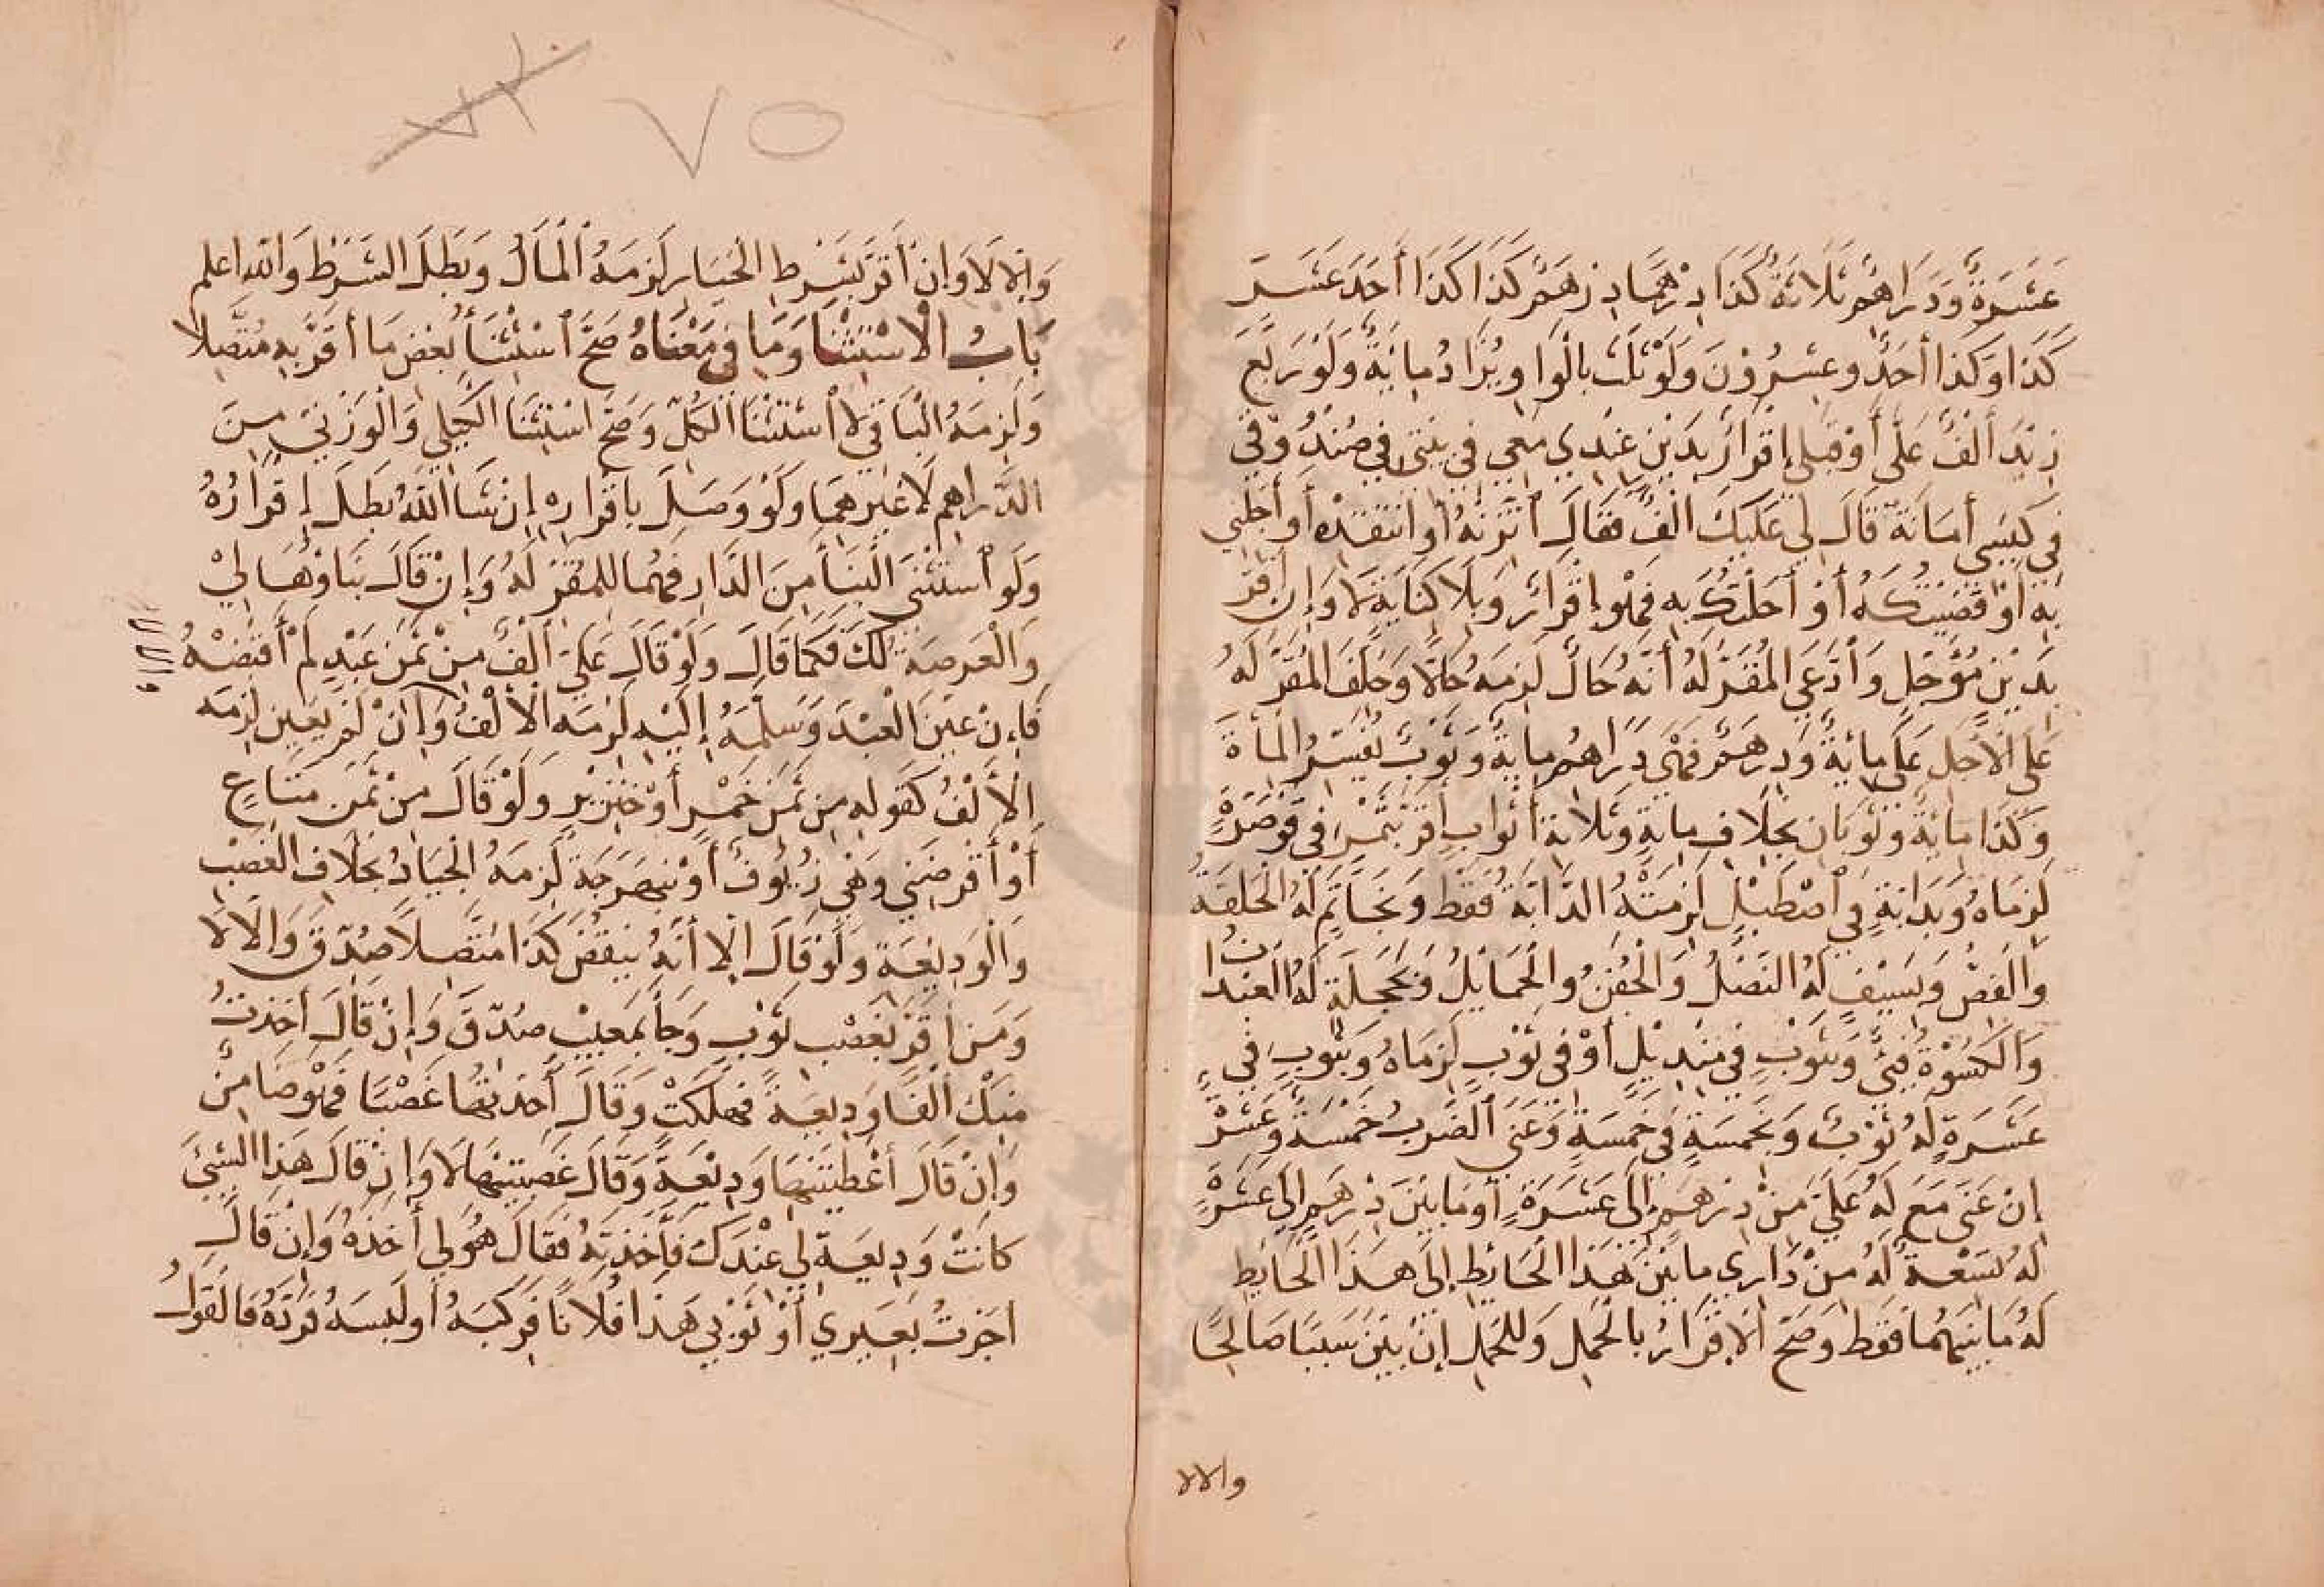 عَشَرَةٌ وَدَرَاهِمُ ثَلَاثَةٌ كَذَا دِرْهَمًا دِرْهَمٌ كَذَا كَذَا أَحَدَ عَشَرَ
كَذَا وَكَذَا أَحَدٌ وعِشْرُوْنَ وَلَوْ ثَلَّثَ بِالْوَاوِ يُزَادُ مِايَةٌ وَلَوْ رَبَّعَ
زِيْدَ أَلْفٌ عَلَيَّ أَوْ قِبَلِي إِقْرَارٌ بِدَيْنٍ عِنْدِي مَعِي فِي بَيْتِي فِي صُنْدُوْقِي
فِي كِيْسِي أَمَانَةٌ قَالَ لِي عَلَيْكَ الْفٌ فَقَالَ ٱتَّزِنْهُ أَوِ انْتَقِدْهُ أَوْ أَجِّلْنِي
بِهِ أَوْ قَضَيْتُكَهُ أَوْ أَحَلْتُكَ بِهِ فَهُوَ إِقْرَارٌ وَبِلَا كِنَايَةٍ لَا وَإِنْ أَقَرَّ
بِدَيْنٍ مُؤَجَّلٍ وَٱدَّعَى الْمُقَرُّ لَهُ أَنَّهُ حَالٌّ لَزِمَهُ حَالًّا وَحَلَفَ الْمُقَرُّ لَهُ
عَلَى الْأَجَلِ عَلَيَّ مِايَةٌ وَدِرْهَمٌ فَهِيَ دَرَاهِمُ مِايَةٌ وَثَوْبٌ يُفَسِّرُ الْمِأَةَ
وَكَذَا مِايَةٌ وَثَوْبَانِ بِخِلَافِ مِايَةٍ وَثَلَاثَةُ أَثْوَابٍ أَقَرَّ بِتَمْرٍ فِي قَوْصَرَةٍ
لَزِمَاهُ وَبِدَابَّةٍ فِي ٱصْطَبْلٍ لَزِمَتْهُ الدَّابَّةُ فَقَطْ وَبِخَاتَمٍ لَهُ الْحَلْقَةُ
وَالْفَصُّ وَبِسَيْفٍ لَهُ النَّصْلُ وَالْجَفْنُ وَالْحَمَايِلُ وَبِحَجَلَةٍ لَهُ الْعِيْدَانُ
وَالْكِسْوَةُ وَبِثَوْبٍ فِي مِنْدِيْلٍ أَوْ فِي ثَوْبٍ لَزِمَاهُ وَبِثَوْبٍ فِي
عَشَرَةٍ لَهُ ثَوْبٌ وَبِخَمْسَةٍ فِي خَمْسَةٍ وَعَنَى ٱلضَّرْبَ خَمْسَةٌ وَعَشْرٌ
إِنْ عَنَى مَعَ لَهُ عَلَيَّ مِنْ دِرْهَمٍ إِلَى عَشَرَةٍ أَوْ مَا بَيْنَ دِرْهَمٍ إِلَى عَشَرَةٍ
لَهُ تِسْعَةٌ لَهُ مِنْ دَارِي مَا بَيْنَ هَذَا الْحَايِطِ إِلَى هَذَا الْحَايِطِ
لَهُ مَا بَيْنَهُمَا فَقَطْ وَصَحَّ الْإِقْرَارُ بِالْحَمْلِ وَلِلْحَمْلِ إِنْ بَيَّنَ سَبَبًا صَالِحًا
والالا
٧٥
وَإِلَّا لَا وَإِنْ أَقَرَّ بِشَرْطِ الْخِيَارِ لَزِمَهُ الْمَالُ وَبَطَلَ الشَّرْطُ وَاللهُ اعلم
بَابُ الْاسْتِثْنَا وَمَا فِي مَعْنَاهُ صَحَّ ٱسْتِثْنَأُ بَعْضِ مَا أَقَرَّ بِهِ مُتَّصِلًا
وَلَزِمَهُ الْبَاقِي لَا ٱسْتِثْنَا الْكُلِّ وَصَحَّ اسْتِثْنَا الْكَيْلِي وَالْوَزْنِيِّ مِنَ
الدَّرَاهِمِ لَا غَيْرِهِمَا وَلَوْ وَصَلَ بِاقْرَارِهِ إِنْ شَا اللَّهُ بَطَلَ إِقْرَارُهُ
وَلَوِ ٱسْتَثْنَى الْبِنَأَ مِنَ الدَّارِ فَهُمَا لِلْمُقَرِّ لَهُ وَإِنْ قَالَ بِنَاؤُهَا لِيْ
وَالْعَرْصَةُ لَكَ فَكَمَا قَالَ وَلَوْ قَالَ عَلَيَّ أَلْفٌ مِنْ ثَمَنِ عَبْدٍ لَمْ أَقْبِضْهُ
فَإِنْ عَيَّنَ الْعَبْدَ وَسَلَّمَهُ إِلَيْهِ لَزِمَهُ الْأَلْفُ وَإِنْ لَمْ يُعَيِّنْ لَزِمَهُ
الْأَلْفُ كَقَوْلِهِ مِنْ ثَمَنِ خَمْرٍ أَوْ خِنْزِيْرٍ وَلَوْ قَالَ مِنْ ثَمَنِ مَتَاعٍ
أَوْ أَقْرَضَنِي وَهْيَ زُيُوْفٌ أَوْ نَبَهْرَجَةٌ لَزِمَهُ الْجِيَادُ بِخِلَافِ الْغَصْبِ
وَالْوَدِيْعَةِ وَلَوْ قَالَ إِلَّا أَنَّهُ يَنْقُصُ كَذَا مُتَّصِلًا صُدِّقَ وَالَّا لَا
وَمَنْ أَقَرَّ بِغَصْبِ ثَوْبٍ وَجَأَ بِمَعِيْبٍ صُدِّقَ وَإِنْ قَالَ أَخَذْتُ
مِنْكَ أَلْفًا وَدِيعَةً فَهَلَكَتْ وَقَالَ أَخَذْتَهَا غَصْبًا فَهُوَ ضَامِنٌ
وَإِنْ قَالَ أَعْطَيْتَنِيْهَا وَدِيْعَةً وَقَالَ غَصَبْتَنِيْهَا لَا وَإِنْ قَالَ هَذَا الشَّيْئُ
كَانَتْ وَدِيعَةً لِي عِنْدَكَ فَأَخَذْتُهُ فَقَالَ هُوَ لِي أَخَذَهُ وَإِنْ قَالَ
اجَرْتُ بَعِيرِي أَوْ ثَوْبِي هَذَا فُلَانًا فَرَكِبَهُ أَوْ لَبِسَهُ فَرَدَّهُ فَالْقَوْلُ